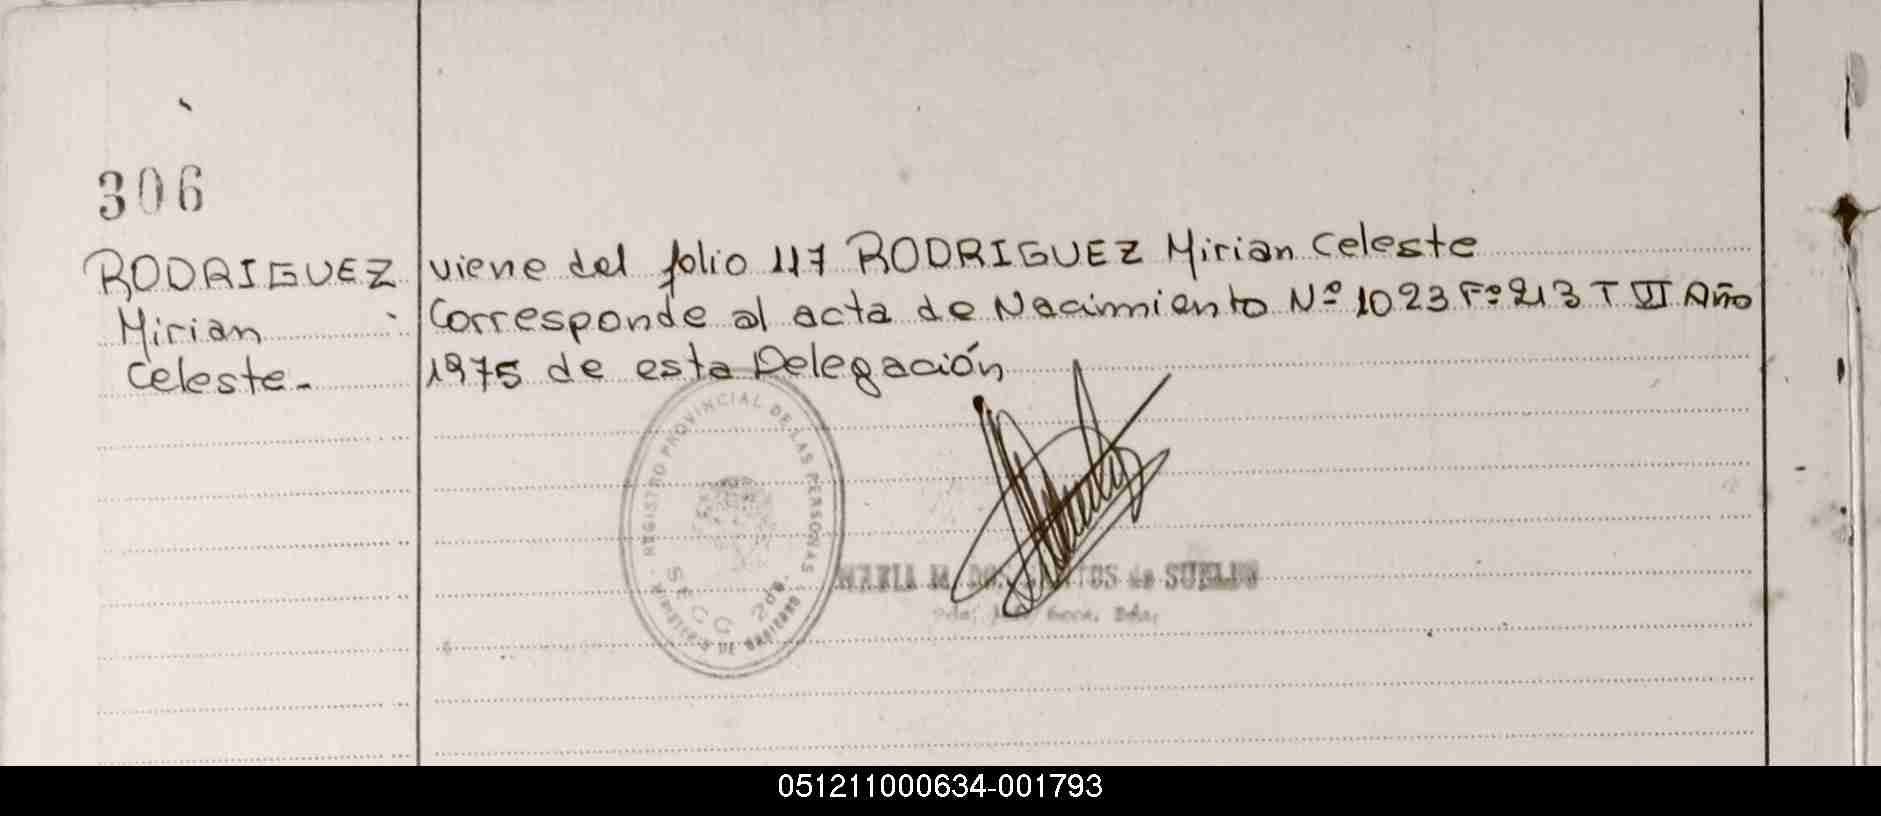 306
RODRIGUEZ
Mirian
Celeste.-
viene del folio 117 RODRIGUEZ Mirian Celeste
Corresponde al acta de Nacimiento Nº 1023 Fº 213 T VI Año
1975 de esta Delegación
REGISTRO PROVINCIAL DE LAS PERSONAS
SECC 2da.
MARIA M. DOS SANTOS de
Secc. 2da.
051211000634-001793